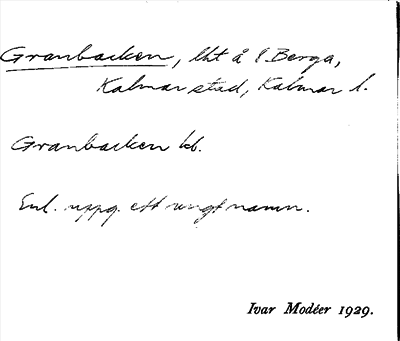 Granbacken, lht å l Berga,
Kalmar stad, Kalmar l.
Granbacken kb.
Enl. uppg. ett ungt namn.
Ivar Modéer 1929.